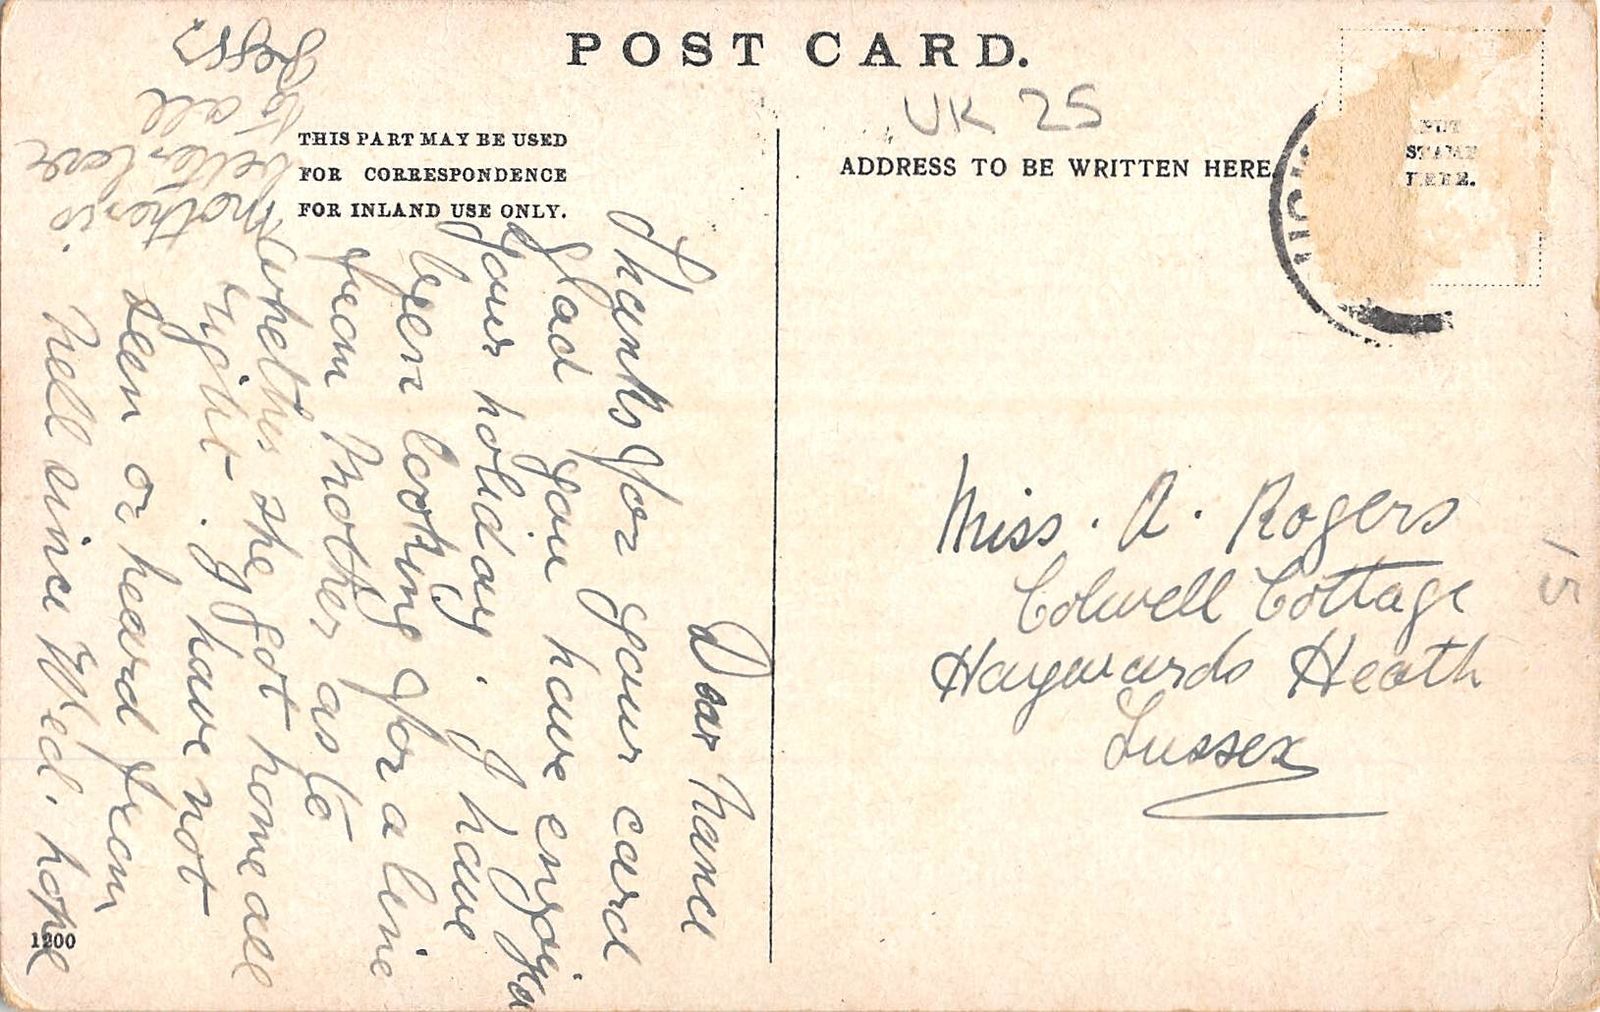 POST CARD.
UK 25
THIS PART MAY BE USED
FOR CORRESPONDENCE
FOR INLAND USE ONLY.
ADDRESS TO BE WRITTEN HERE
PUT
STAMP
HERE.
Dear Nance
Thanks for your card
glad you have enjoyed
your holiday. I have
been looking for a line
from Mother as to
whether she got home all
right. I have not
seen or heard from
Nell since Wed. hope
Mother is
better love
to all
Jess
Miss. A. Rogers
Colwell Cottage
Haywards Heath
Sussex
5/
1200